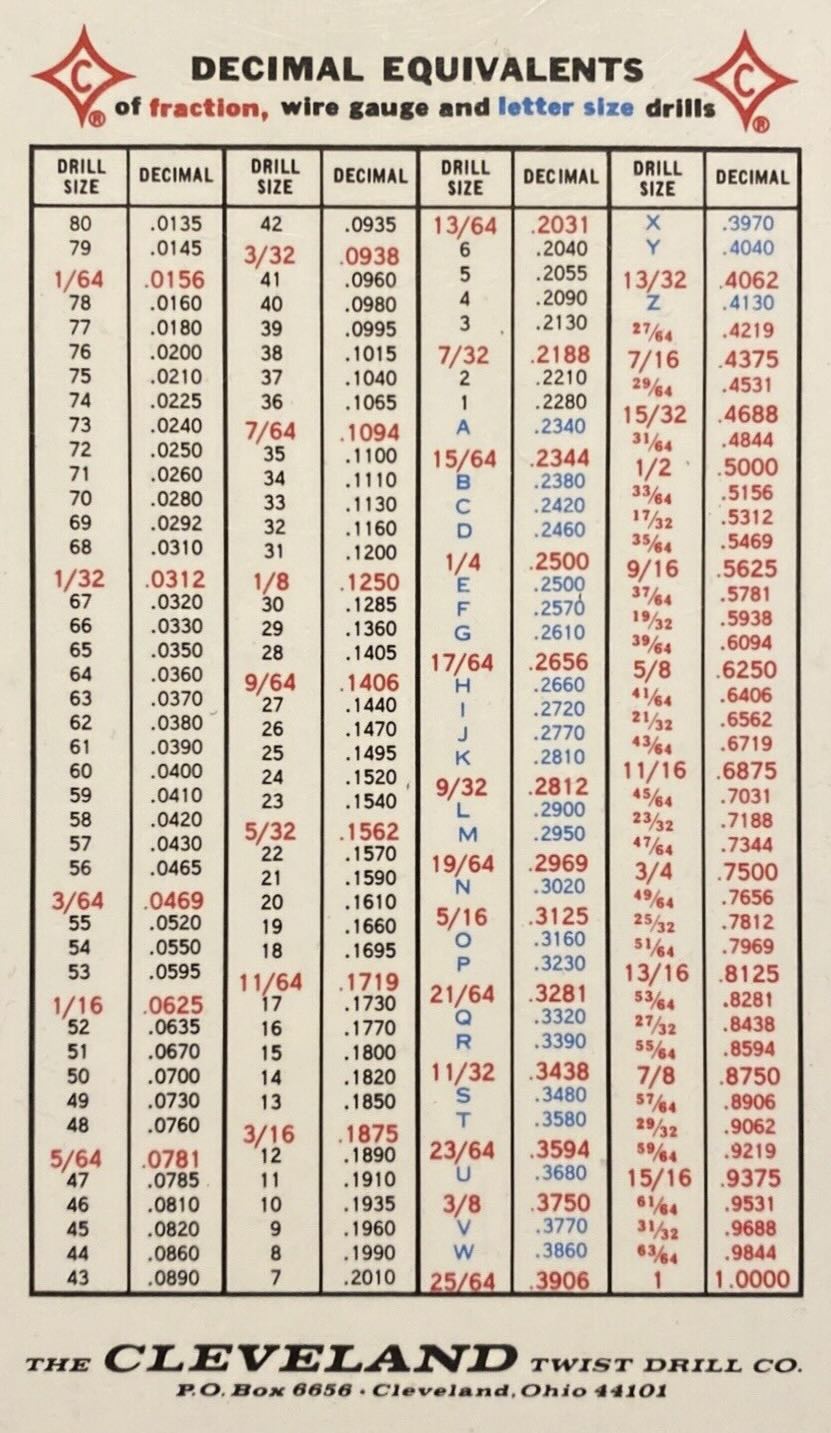 C C
DECIMAL EQUIVALENTS
® of fraction, wire gauge and letter size drills ®
DRILL SIZE DECIMAL DRILL SIZE DECIMAL DRILL SIZE DECIMAL DRILL SIZE DECIMAL
80 .0135
79 .0145
1/64 .0156
78 .0160
77 .0180
76 .0200
75 .0210
74 .0225
73 .0240
72 .0250
71 .0260
70 .0280
69 .0292
68 .0310
1/32 .0312
67 .0320
66 .0330
65 .0350
64 .0360
63 .0370
62 .0380
61 .0390
60 .0400
59 .0410
58 .0420
57 .0430
56 .0465
3/64 .0469
55 .0520
54 .0550
53 .0595
1/16 .0625
52 .0635
51 .0670
50 .0700
49 .0730
48 .0760
5/64 .0781
47 .0785
46 .0810
45 .0820
44 .0860
43 .0890
42 .0935
3/32 .0938
41 .0960
40 .0980
39 .0995
38 .1015
37 .1040
36 .1065
7/64 .1094
35 .1100
34 .1110
33 .1130
32 .1160
31 .1200
1/8 .1250
30 .1285
29 .1360
28 .1405
9/64 .1406
27 .1440
26 .1470
25 .1495
24 .1520
23 .1540
5/32 .1562
22 .1570
21 .1590
20 .1610
19 .1660
18 .1695
11/64 .1719
17 .1730
16 .1770
15 .1800
14 .1820
13 .1850
3/16 .1875
12 .1890
11 .1910
10 .1935
9 .1960
8 .1990
7 .2010
13/64 .2031
6 .2040
5 .2055
4 .2090
3 .2130
7/32 .2188
2 .2210
1 .2280
A .2340
15/64 .2344
B .2380
C .2420
D .2460
1/4 .2500
E .2500
F .2570
G .2610
17/64 .2656
H .2660
I .2720
J .2770
K .2810
9/32 .2812
L .2900
M .2950
19/64 .2969
N .3020
5/16 .3125
O .3160
P .3230
21/64 .3281
Q .3320
R .3390
11/32 .3438
S .3480
T .3580
23/64 .3594
U .3680
3/8 .3750
V .3770
W .3860
25/64 .3906
X .3970
Y .4040
13/32 .4062
Z .4130
27/64 .4219
7/16 .4375
29/64 .4531
15/32 .4688
31/64 .4844
1/2 .5000
33/64 .5156
17/32 .5312
35/64 .5469
9/16 .5625
37/64 .5781
19/32 .5938
39/64 .6094
5/8 .6250
41/64 .6406
21/32 .6562
43/64 .6719
11/16 .6875
45/64 .7031
23/32 .7188
47/64 .7344
3/4 .7500
49/64 .7656
25/32 .7812
51/64 .7969
13/16 .8125
53/64 .8281
27/32 .8438
55/64 .8594
7/8 .8750
57/64 .8906
29/32 .9062
59/64 .9219
15/16 .9375
61/64 .9531
31/32 .9688
63/64 .9844
1 1.0000
THE CLEVELAND TWIST DRILL CO.
P.O. Box 6656 · Cleveland, Ohio 44101